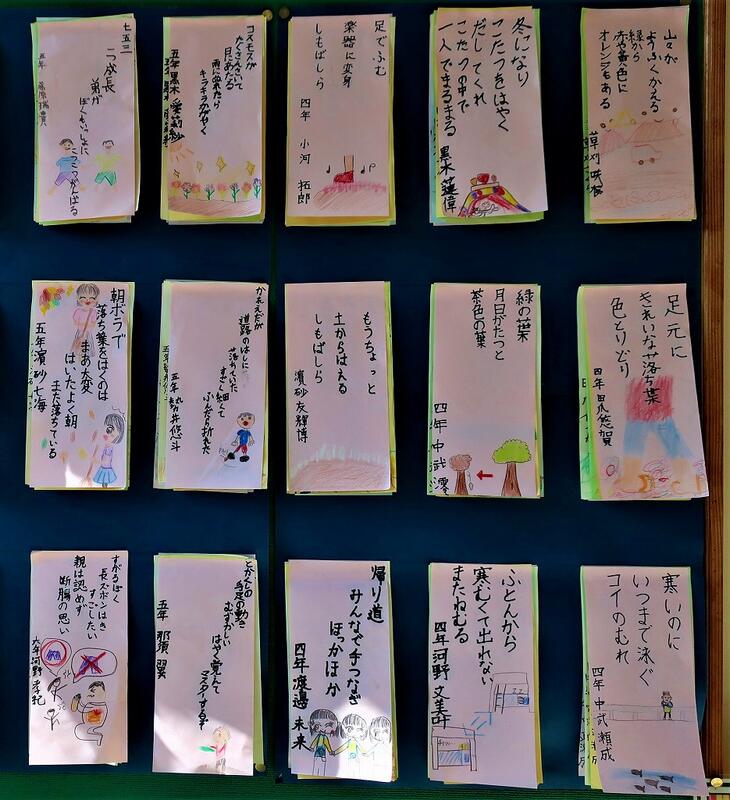 山々が
ようふくかえる
緑から
赤や黄色に
オレンジもある
草刈
冬になり
こたつをはやく
だしてくれ
こたつの中で
一人でまるまる
黒木 蓮偉
足でふむ
楽器に変身
しもばしら
四年 小河 拓郎
コスモスが
たくさんさいて
目にあたる
雨にぬれたら
キラキラかがやく
五年 黒木 愛莉紗
七五三
二つ成長
弟が
ぼくもいっしょに
こつこつがんばる
五年
足元に
きれいな落ち葉
色とりどり
四年 田爪悠賀
緑の葉
月日がたつと
茶色の葉
四年 中武 澪
もうちょっと
土からはえる
しもばしら
濵砂 友輝博
かれえだが
道路のはしに
落ちていた
すごく細くて
ふんだら折れた
五年
朝ボラで
落ち葉をはくのは
まあ大変
はいたよく朝
また落ちている
五年 濵砂 七海
寒いのに
いつまで泳ぐ
コイのむれ
四年 中武 瀬成
ふとんから
寒むくて出れない
またねむる
四年 河野
帰り道
みんなで手つなぎ
ほっかほか
四年 渡邊 未来
手足の動き
むずかしい
はやく覚えて
マスターするぞ
五年 那須 翼
すがるぼく
長ズボンはき
すごしたい
親は認めず
断腸の思い
六年 河野